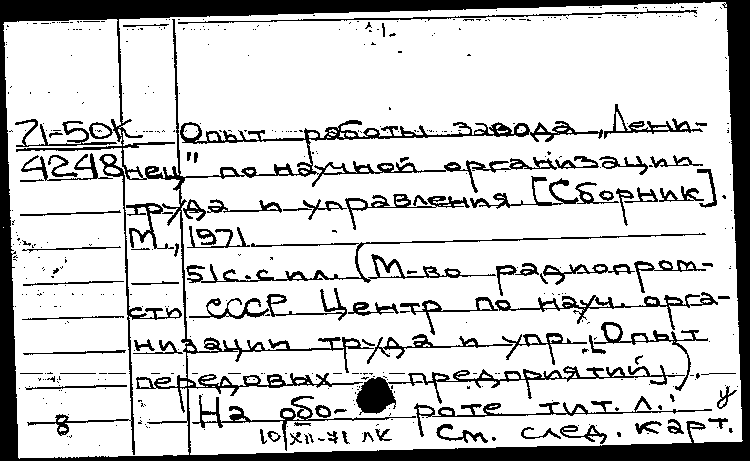 71-50К Опыт работы завода „Лени-
4248 нец" по научной организации
труда и управления [Сборник].
М., 1971.
51 с. с ил. (М-во радиопром-
сти СССР. Центр по науч. орга-
низации труда и упр. [Опыт
передовых предприятий]).
На обо- роте тит. л.: у
8 10/XII-71 ЛК См. след. карт.